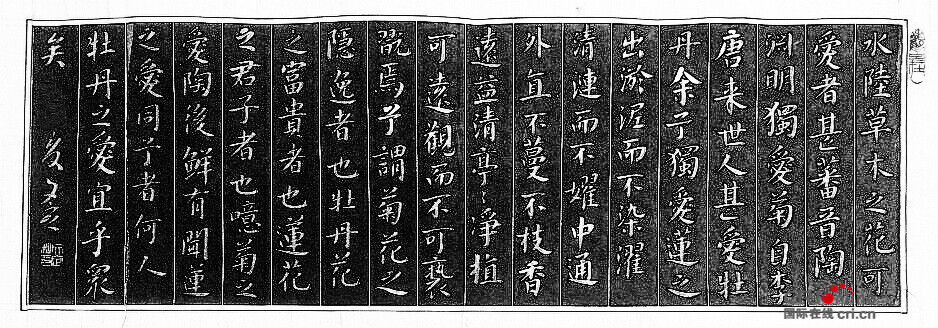 水陸草木之花可
愛者甚蕃晉陶
渊明獨愛菊自李
唐来世人甚愛牡
丹余予獨愛蓮之
出淤泥而不染濯
清漣而不嬥中通
外直不蔓不枝香
遠益清亭〻淨植
可遠觀而不可褻
翫焉予謂菊花之
隱逸者也牡丹花
之富貴者也蓮花
之君子者也噫菊之
愛陶後鮮有聞蓮
之愛同予者何人
牡丹之愛宜乎眾
矣
国际在线 cri.cn